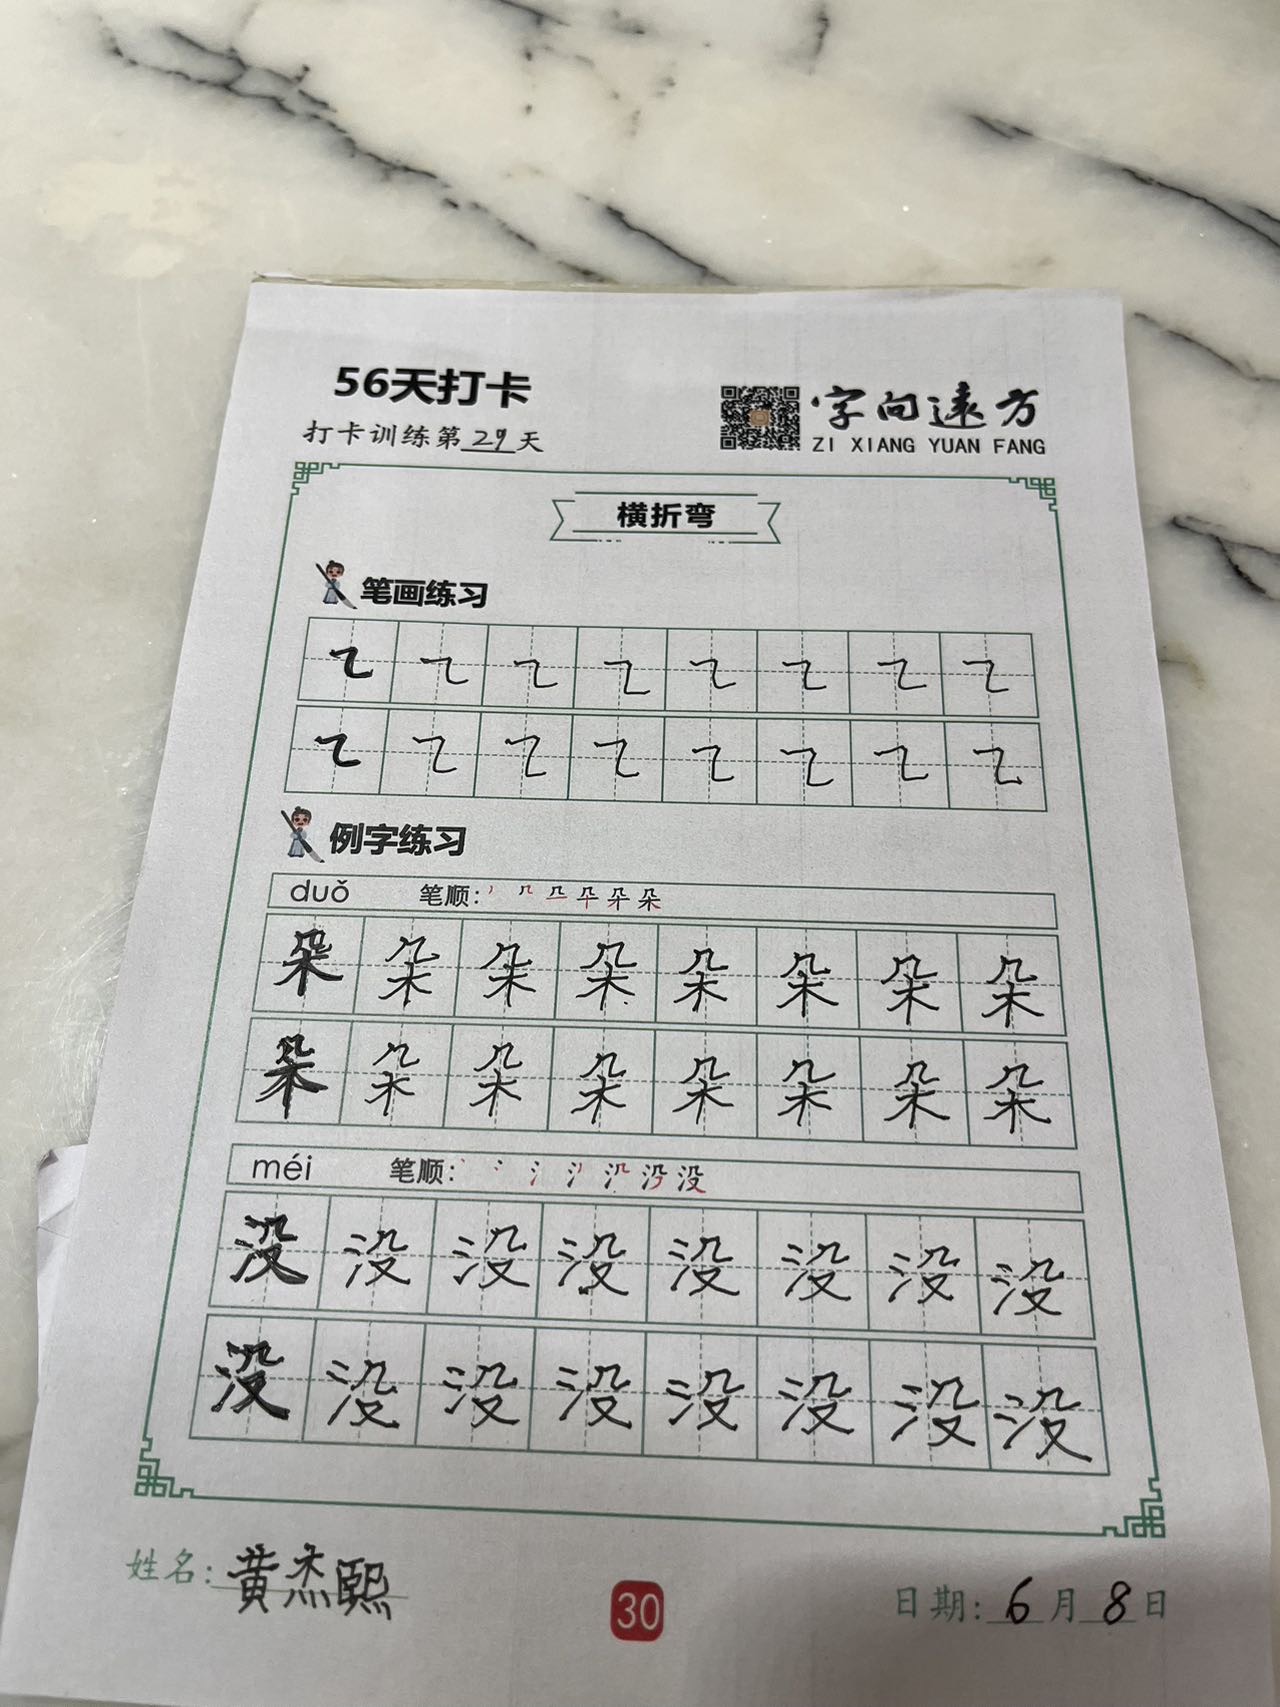 56天打卡
打卡训练第29天
字向遠方
ZI XIANG YUAN FANG
横折弯
笔画练习
㇍ ㇍ ㇍ ㇍ ㇍ ㇍ ㇍ ㇍
㇍ ㇍ ㇍ ㇍ ㇍ ㇍ ㇍ ㇍
例字练习
duǒ 笔顺:
朵 朵 朵 朵 朵 朵 朵 朵
朵 朵 朵 朵 朵 朵 朵 朵
méi 笔顺:
没 没 没 没 没 没 没 没
没 没 没 没 没 没 没 没
姓名:黄杰熙
30
日期:6月8日